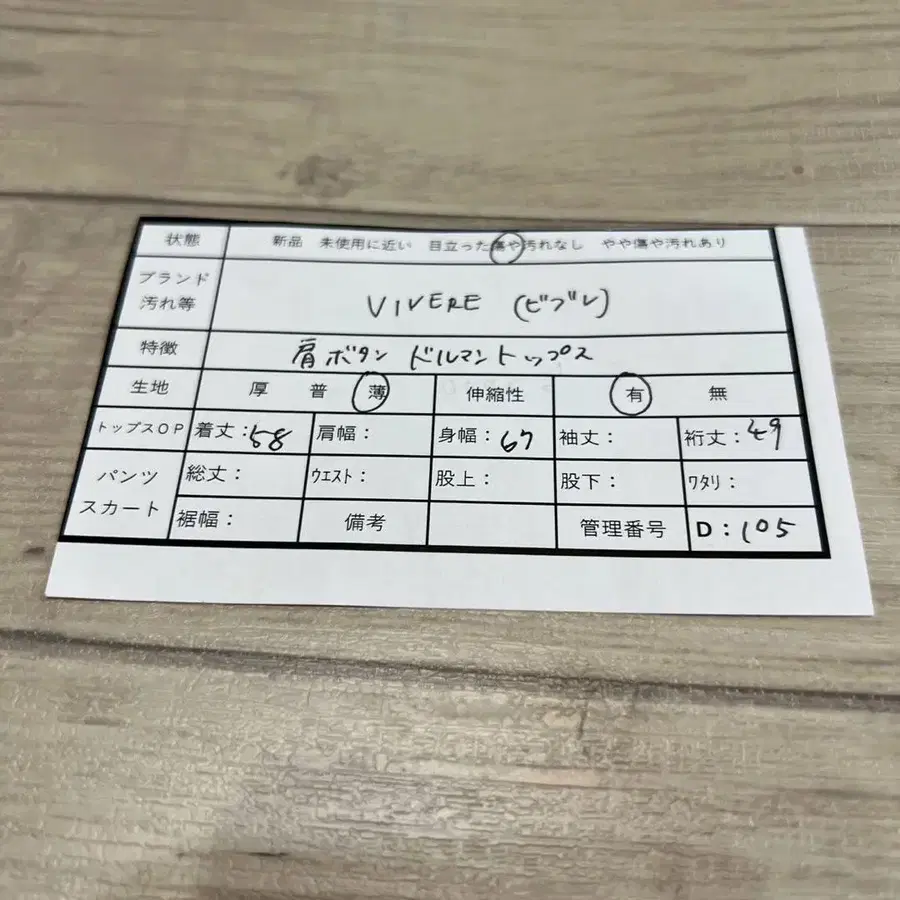 状態 新品 未使用に近い 目立った傷や汚れなし やや傷や汚れあり
ブランド
汚れ等 VIVERE (ビブレ)
特徴 肩ボタン ドルマントップス
生地 厚 普 薄 伸縮性 有 無
トップスOP 着丈:58 肩幅: 身幅:67 袖丈: 裄丈:49
パンツ
スカート
総丈: ウエスト: 股上: 股下: ワタリ:
裾幅: 備考 管理番号 D:105